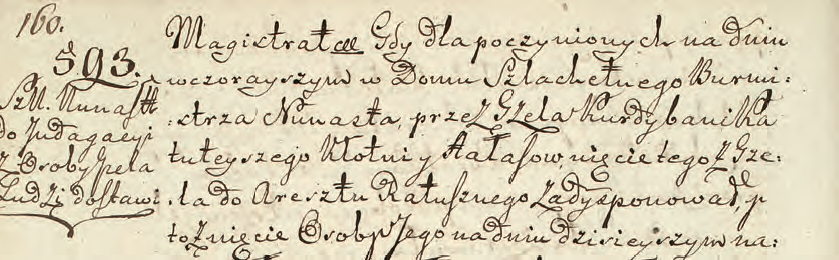 160.
593.
SzU. Nunasta
do Indagacyi
z Osoby Jela
Ludzi dostawi
Magistrat Gdy dla poczynionych na dniu
wczorayszym w Domu Szlachetnego Burmi:
:strza Nunasta, przez Gzela Kurdybanika
tuteyszego Kłotni y Hałasow nięcie tego z Gze:
:la do Aresztu Ratusznego zadysponował, p
to z nięcie Osoby Jego na dniu dzisieyszym na: